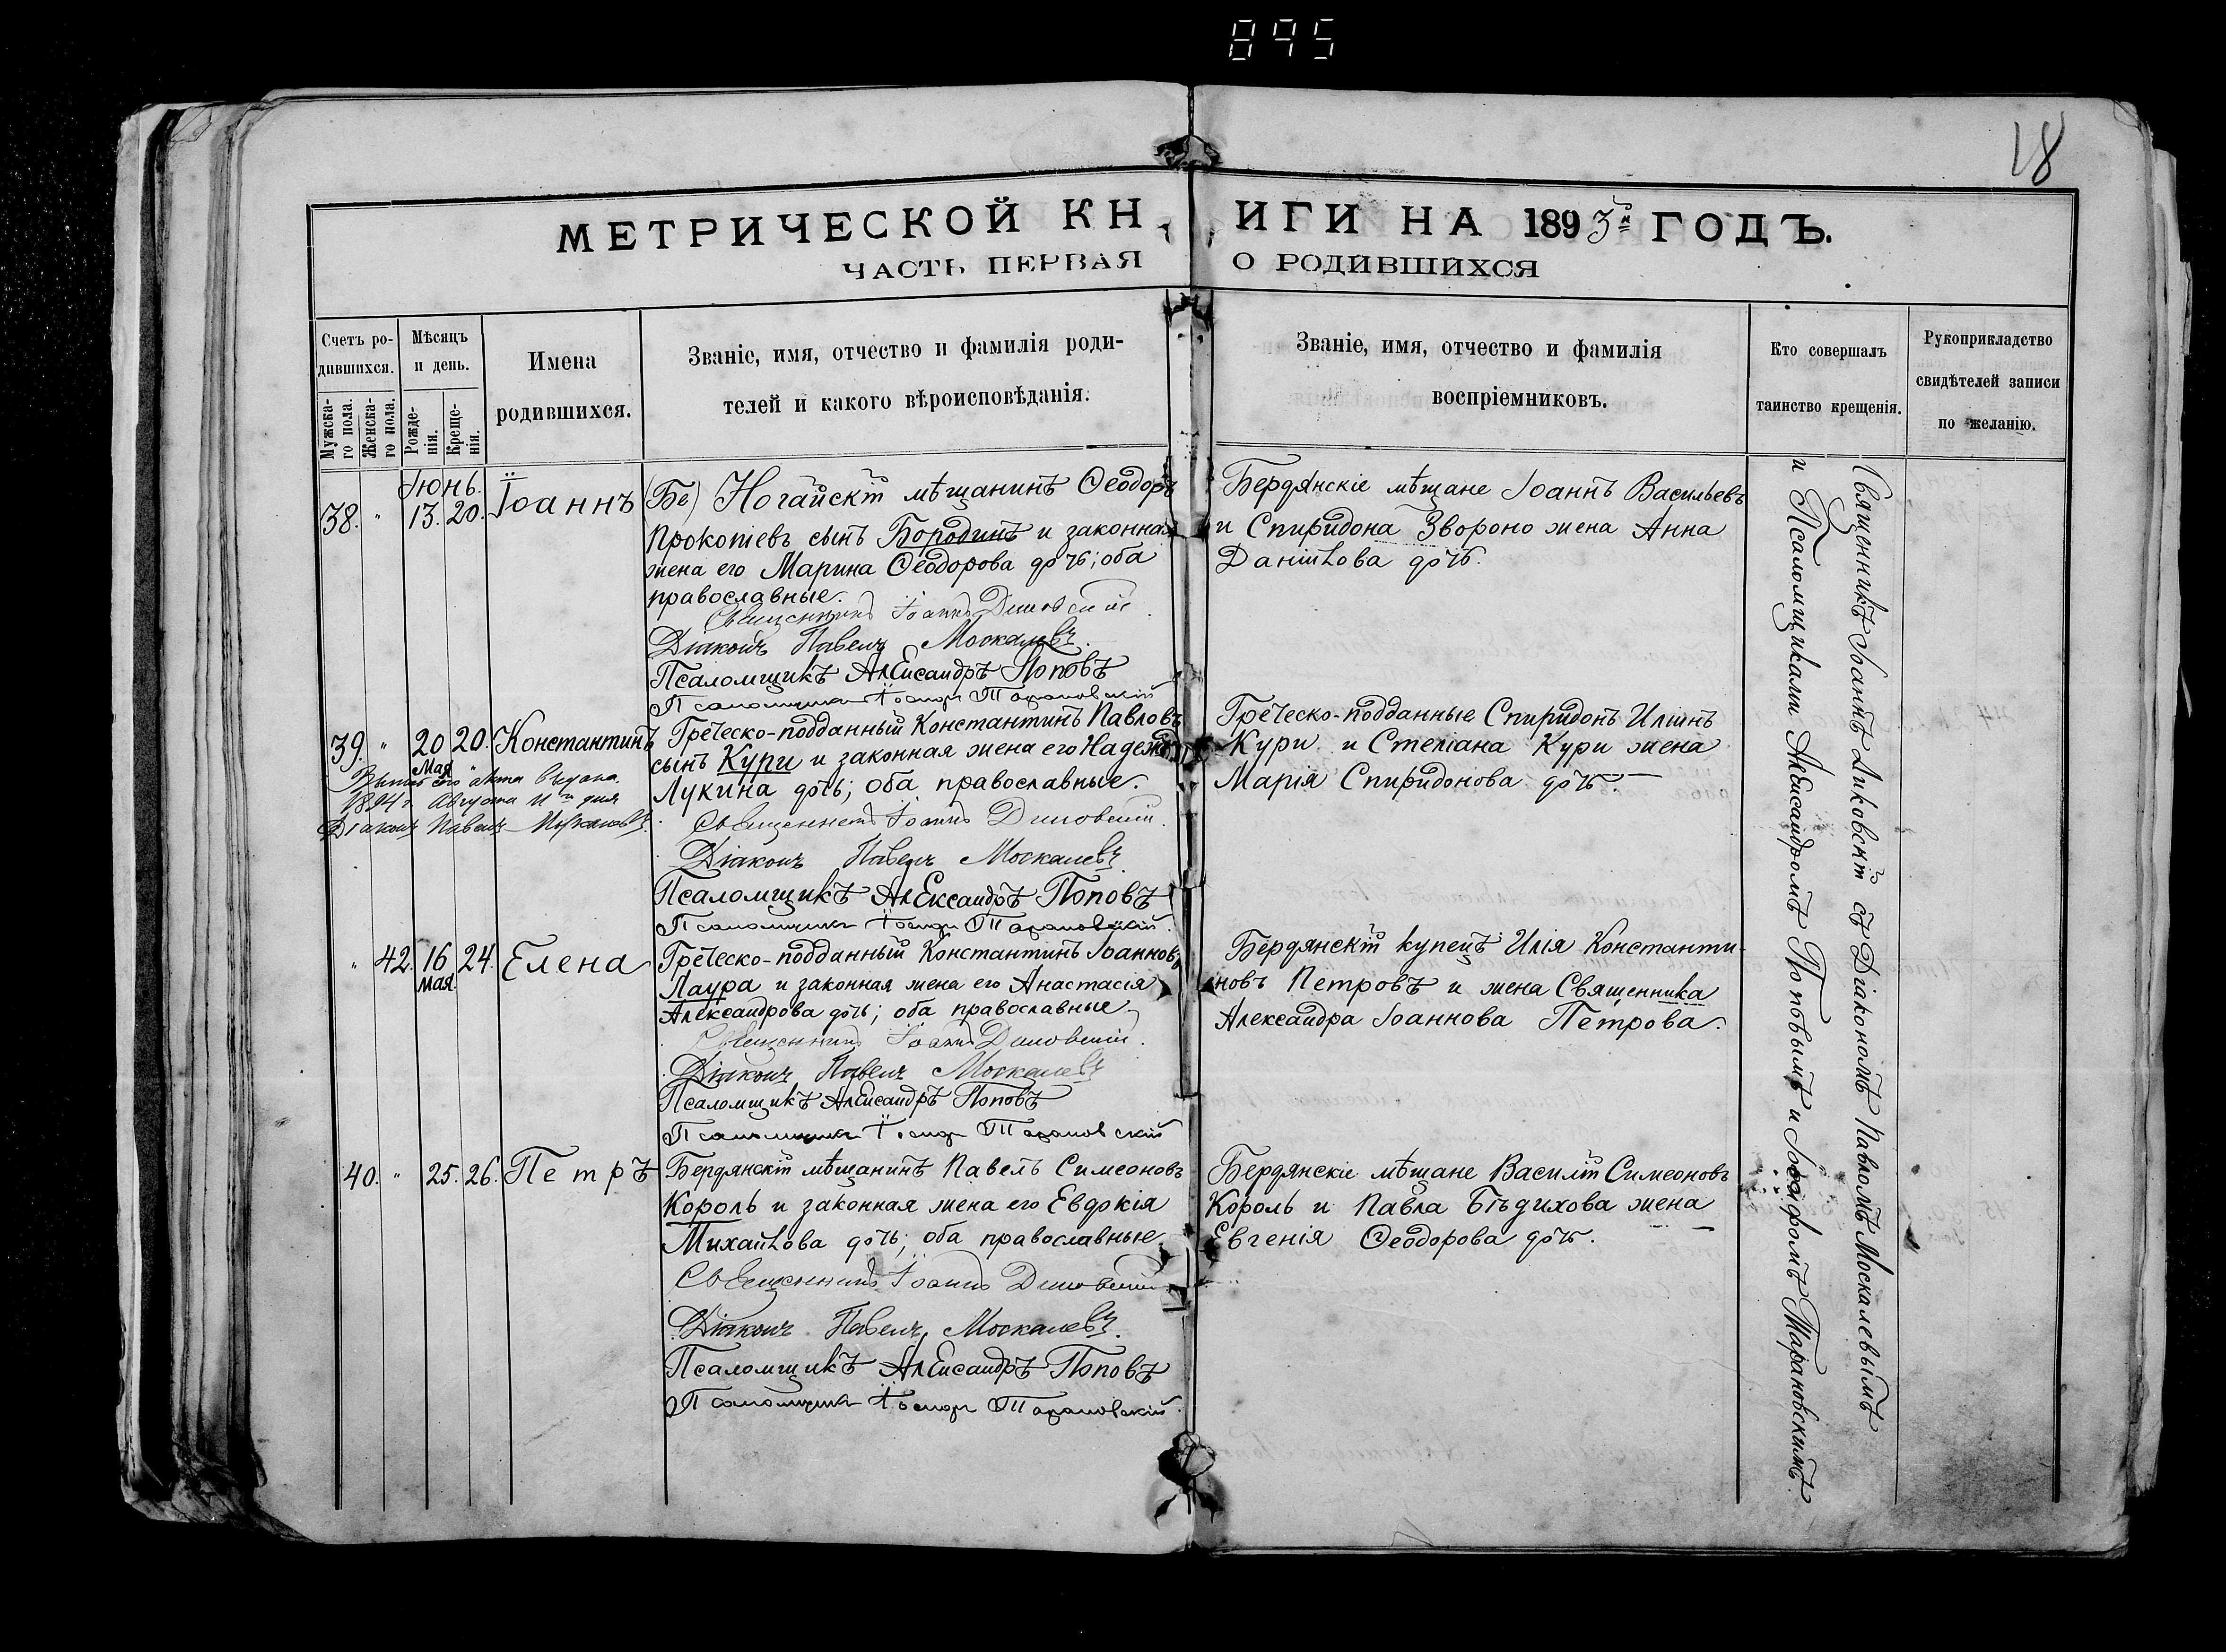 895
18
МЕТРИЧЕСКОЙ КНИГИ НА 1893й ГОДЪ.
ЧАСТЬ ПЕРВАЯ О РОДИВШИХСЯ
Счетъ ро-
дившихся.
Мужска-
го пола.
Женска-
го пола.
Мѣсяцъ
и день.
Рожде-
нія.
Креще-
нія.
Имена
родившихся.
Званіе, имя, отчество и фамилія роди-
телей и какого вѣроисповѣданія.
Званіе, имя, отчество и фамилія
воспріемниковъ.
Кто совершалъ
таинство крещенія.
Рукоприкладство
свидѣтелей записи
по желанію.
Іюнь.
38. " 13. 20. Іоаннъ
(Бе) Ногайскій мѣщанинъ Ѳеодоръ
Прокопіевъ сынъ Бородинъ и законная
жена его Марина Ѳеодорова дочь; оба
православные.
Священникъ Іоаннъ
Діаконъ Павелъ Москалевъ.
Псаломщикъ Александръ Поповъ
Псаломщикъ Іосифъ Тарановскій
Бердянскіе мѣщане Іоаннъ Васильевъ
и Спиридона Звороно жена Анна
Даніилова дочь.
39. " 20 20. Константинъ
Мая
Выпись сего акта выдана
1894 г. Августа 11го дня
Діаконъ Павелъ Москалевъ.
Греческо-подданный Константинъ Павловъ
сынъ Кури и законная жена его Надежда
Лукина дочь; оба православные.
Священникъ Іоаннъ
Діаконъ Павелъ Москалевъ
Псаломщикъ Александръ Поповъ
Псаломщикъ Іосифъ Тарановскій.
Греческо-подданные Спиридонъ Иліинъ
Кури и Стеліана Кури жена
Марія Спиридонова дочь.
" 42. 16 24. Елена
мая.
Греческо-подданный Константинъ Іоанновъ
Лаура и законная жена его Анастасія
Александрова дочь; оба православные
Священникъ Іоаннъ
Діаконъ Павелъ Москалевъ
Псаломщикъ Александръ Поповъ
Псаломщикъ Іосифъ Тарановскій
Бердянскій купецъ Илія Константи-
новъ Петровъ и жена Священника
Александра Іоаннова Петрова.
40. " 25. 26. Петръ
Бердянскій мѣщанинъ Павелъ Симеоновъ
Король и законная жена его Евдокія
Михайлова дочь; оба православные
Священникъ Іоаннъ
Діаконъ Павелъ Москалевъ.
Псаломщикъ Александръ Поповъ
Псаломщикъ Іосифъ Тарановскій.
Бердянскіе мѣщане Василій Симеоновъ
Король и Павла Бѣдихова жена
Евгенія Ѳеодорова дочь.
Священникъ Іоаннъ съ Діакономъ Павломъ Москалевымъ
и Псаломщиками Александромъ Поповымъ и Іосифомъ Тарановскимъ.